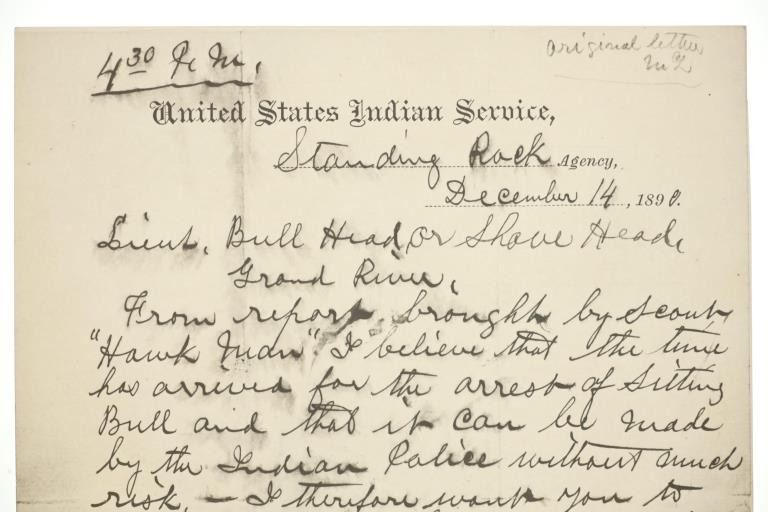 4 30 P.M.
Original letter
United States Indian Service,
Standing Rock Agency,
December 14, 1890.
Lieut. Bull Head, or Shave Head,
Grand River,
From report brought by scout
"Hawk Man". I believe that the time
has arrived for the arrest of Sitting
Bull and that it can be made
by the Indian Police without much
risk. — I therefore want you to